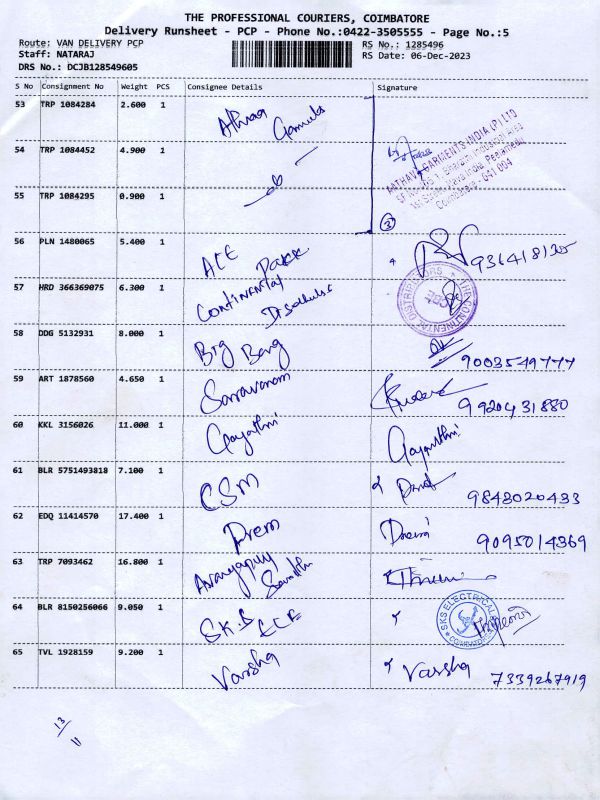 THE PROFESSIONAL COURIERS, COIMBATORE
Delivery Runsheet - PCP - Phone No.:0422-3505555 - Page No.:5
Route: VAN DELIVERY PCP RS No.: 1285496
Staff: NATARAJ RS Date: 06-Dec-2023
DRS No.: DCJB128549605
S No Consignment No Weight PCS Consignee Details Signature
53 TRP 1084284 2.600 1
54 TRP 1084452 4.900 1
AATHAVA GARMENTS INDIA (P) LTD
Coimbatore - 641 004
55 TRP 1084295 0.900 1
3
56 PLN 1480065 5.400 1 ACE
57 HRD 366369075 6.300 1 Continental
THE CONTINENTAL DISTRIBUTORS
58 DDG 5132931 8.000 1 Big Bang 9003549777
59 ART 1878560 4.650 1 Saravanam 9920431880
60 KKL 3156026 11.000 1 Gayathri Gayathri
61 BLR 5751493818 7.100 1 CSM 9843020433
62 EDQ 11414570 17.400 1 Prem 9095014369
63 TRP 7093462 16.800 1
64 BLR 8150256066 9.050 1 S.K.S ECE
SKS ELECTRICAL COIMBATORE
65 TVL 1928159 9.200 1 Varsha Varsha 7339267919
13
11